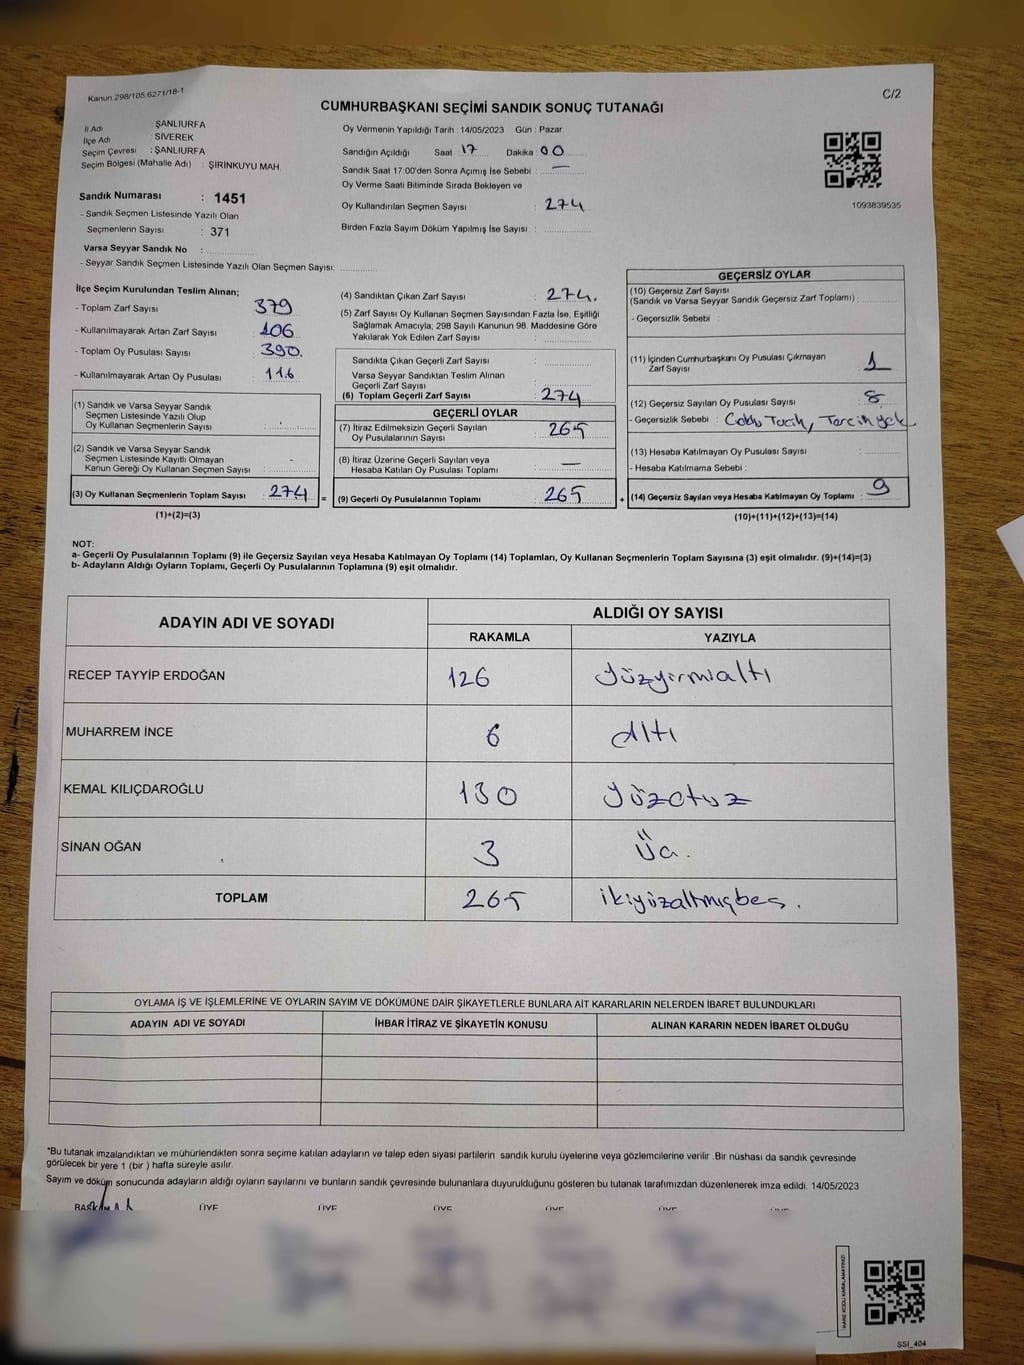 Kanun 298/105,6271/18-1
C/2
CUMHURBAŞKANI SEÇİMİ SANDIK SONUÇ TUTANAĞI
İl Adı ŞANLIURFA
İlçe Adı SİVEREK
Seçim Çevresi : ŞANLIURFA
Seçim Bölgesi (Mahalle Adı) : ŞİRİNKUYU MAH.
Sandık Numarası : 1451
- Sandık Seçmen Listesinde Yazılı Olan
Seçmenlerin Sayısı : 371
Varsa Seyyar Sandık No :
- Seyyar Sandık Seçmen Listesinde Yazılı Olan Seçmen Sayısı:
Oy Vermenin Yapıldığı Tarih : 14/05/2023 Gün : Pazar
Sandığın Açıldığı Saat 17 Dakika 00
Sandık Saat 17:00'den Sonra Açımış İse Sebebi : —
Oy Verme Saati Bitiminde Sırada Bekleyen ve
Oy Kullandırılan Seçmen Sayısı : 274
Birden Fazla Sayım Döküm Yapılmış İse Sayısı :
1093839535
İlçe Seçim Kurulundan Teslim Alınan;
- Toplam Zarf Sayısı : 379
- Kullanılmayarak Artan Zarf Sayısı : 106
- Toplam Oy Pusulası Sayısı : 390.
- Kullanılmayarak Artan Oy Pusulası : 116
(1) Sandık ve Varsa Seyyar Sandık
Seçmen Listesinde Yazılı Olup
Oy Kullanan Seçmenlerin Sayısı :
(2) Sandık ve Varsa Seyyar Sandık
Seçmen Listesinde Kayıtlı Olmayan
Kanun Gereği Oy Kullanan Seçmen Sayısı : -
(3) Oy Kullanan Seçmenlerin Toplam Sayısı : 274 =
(1)+(2)=(3)
(4) Sandıktan Çıkan Zarf Sayısı : 274.
(5) Zarf Sayısı Oy Kullanan Seçmen Sayısından Fazla İse, Eşitliği
Sağlamak Amacıyla; 298 Sayılı Kanunun 98. Maddesine Göre
Yakılarak Yok Edilen Zarf Sayısı :
Sandıkta Çıkan Geçerli Zarf Sayısı :
Varsa Seyyar Sandıktan Teslim Alınan
Geçerli Zarf Sayısı :
(6) Toplam Geçerli Zarf Sayısı : 274
GEÇERLİ OYLAR
(7) İtiraz Edilmeksizin Geçerli Sayılan
Oy Pusulalarının Sayısı : 265
(8) İtiraz Üzerine Geçerli Sayılan veya
Hesaba Katılan Oy Pusulası Toplamı : —
(9) Geçerli Oy Pusulalarının Toplamı : 265 +
GEÇERSİZ OYLAR
(10) Geçersiz Zarf Sayısı
(Sandık ve Varsa Seyyar Sandık Geçersiz Zarf Toplamı) :
- Geçersizlik Sebebi :
(11) İçinden Cumhurbaşkanı Oy Pusulası Çıkmayan
Zarf Sayısı : 1
(12) Geçersiz Sayılan Oy Pusulası Sayısı : 8
- Geçersizlik Sebebi :
(13) Hesaba Katılmayan Oy Pusulası Sayısı :
- Hesaba Katılmama Sebebi :
(14) Geçersiz Sayılan veya Hesaba Katılmayan Oy Toplamı : 9
(10)+(11)+(12)+(13)=(14)
NOT:
a- Geçerli Oy Pusulalarının Toplamı (9) ile Geçersiz Sayılan veya Hesaba Katılmayan Oy Toplamı (14) Toplamları, Oy Kullanan Seçmenlerin Toplam Sayısına (3) eşit olmalıdır. (9)+(14)=(3)
b- Adayların Aldığı Oyların Toplamı, Geçerli Oy Pusulalarının Toplamına (9) eşit olmalıdır.
ADAYIN ADI VE SOYADI
ALDIĞI OY SAYISI
RAKAMLA YAZIYLA
RECEP TAYYİP ERDOĞAN 126 Yüzyirmialtı
MUHARREM İNCE 6 Altı
KEMAL KILIÇDAROĞLU 130 Yüzotuz
SİNAN OĞAN 3 Üç.
TOPLAM 265 ikiyüzaltmışbeş.
OYLAMA İŞ VE İŞLEMLERİNE VE OYLARIN SAYIM VE DÖKÜMÜNE DAİR ŞİKAYETLERLE BUNLARA AİT KARARLARIN NELERDEN İBARET BULUNDUKLARI
ADAYIN ADI VE SOYADI İHBAR İTİRAZ VE ŞİKAYETİN KONUSU ALINAN KARARIN NEDEN İBARET OLDUĞU
*Bu tutanak imzalandıktan ve mühürlendikten sonra seçime katılan adayların ve talep eden siyasi partilerin sandık kurulu üyelerine veya gözlemcilerine verilir .Bir nüshası da sandık çevresinde
görülecek bir yere 1 (bir ) hafta süreyle asılır.
Sayım ve döküm sonucunda adayların aldığı oyların sayılarını ve bunların sandık çevresinde bulunanlara duyurulduğunu gösteren bu tutanak tarafımızdan düzenlenerek imza edildi. 14/05/2023
BAŞKAN ÜYE ÜYE ÜYE ÜYE ÜYE ÜYE
KARE KODU KARALAMAYINIZ!
SSI_404